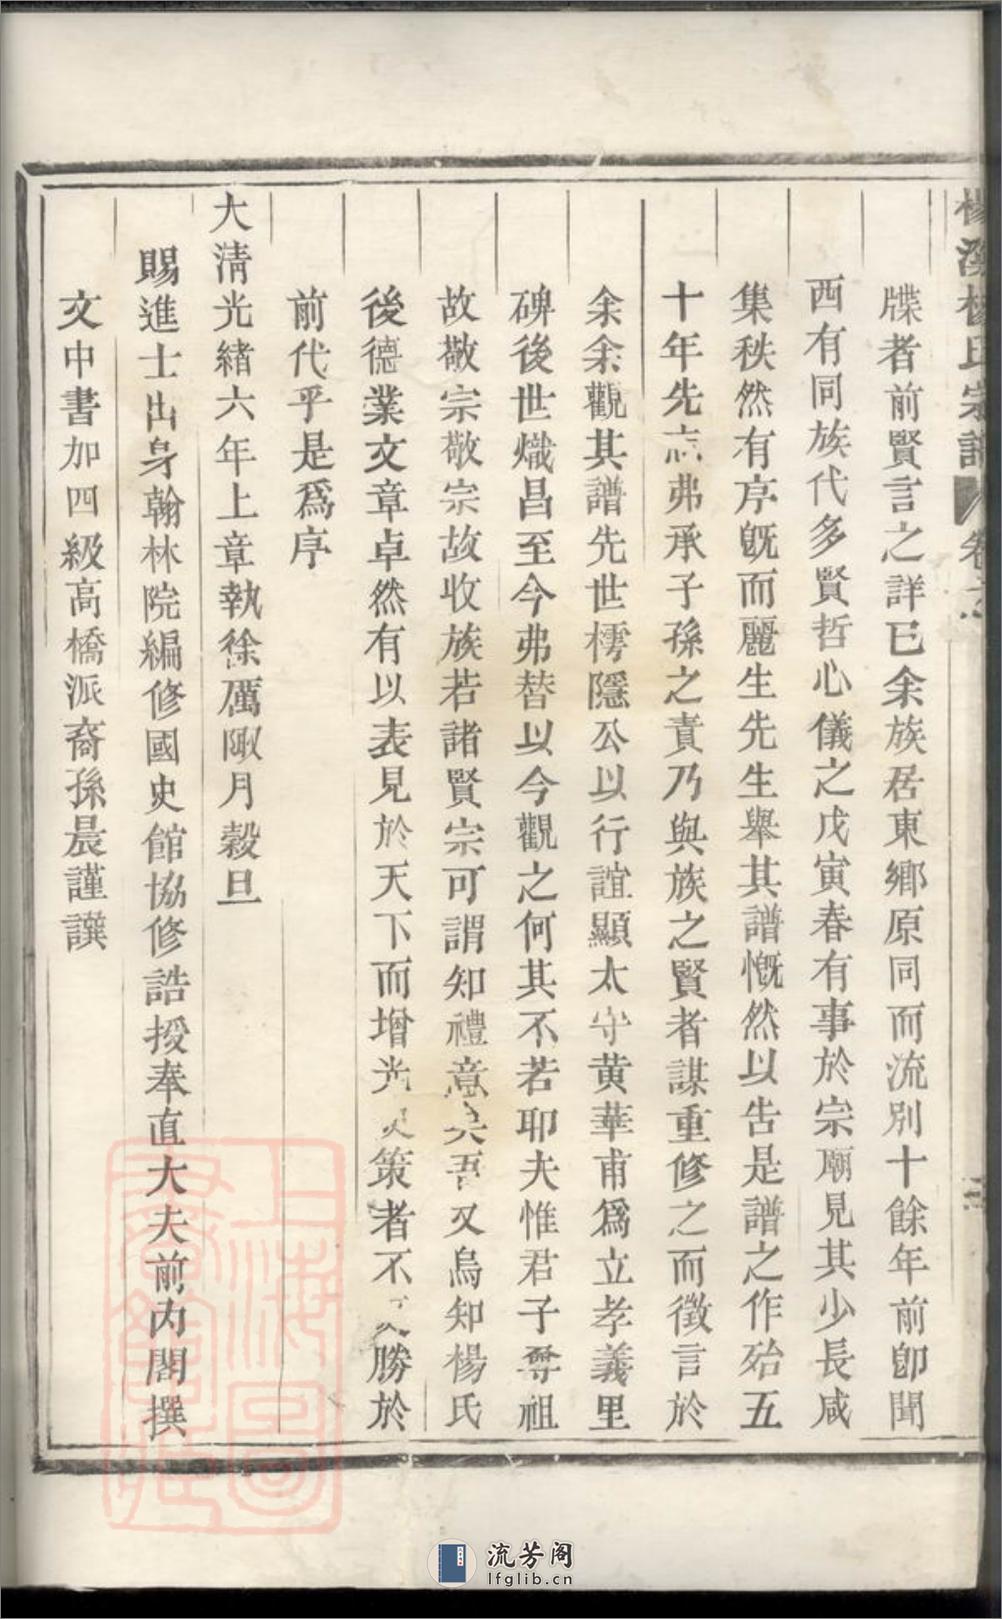 楊溪楊氏宗譜 卷之
牒者前賢言之詳已余族居東鄉原同而流別十餘年前卽聞
西有同族代多賢哲心儀之戊寅春有事於宗廟見其少長咸
集秩然有序旣而麗生先生舉其譜慨然以告是譜之作殆五
十年先志弗承子孫之責乃與族之賢者謀重修之而徵言於
余余觀其譜先世樗隱公以行誼顯太守黄華甫爲立孝義里
碑後世熾昌至今弗替以今觀之何其不若耶夫惟君子尊祖
故敬宗敬宗故收族若諸賢宗可謂知禮意矣吾又烏知楊氏
後德業文章卓然有以表見於天下而增光史策者不更勝於
前代乎是爲序
大清光緒六年上章執徐厲陬月榖旦
賜進士出身翰林院編修國史館協修誥授奉直大夫前内閣撰
文中書加四級高橋派裔孫晨謹譔
上海圖書館藏
流芳阁
lfglib.cn